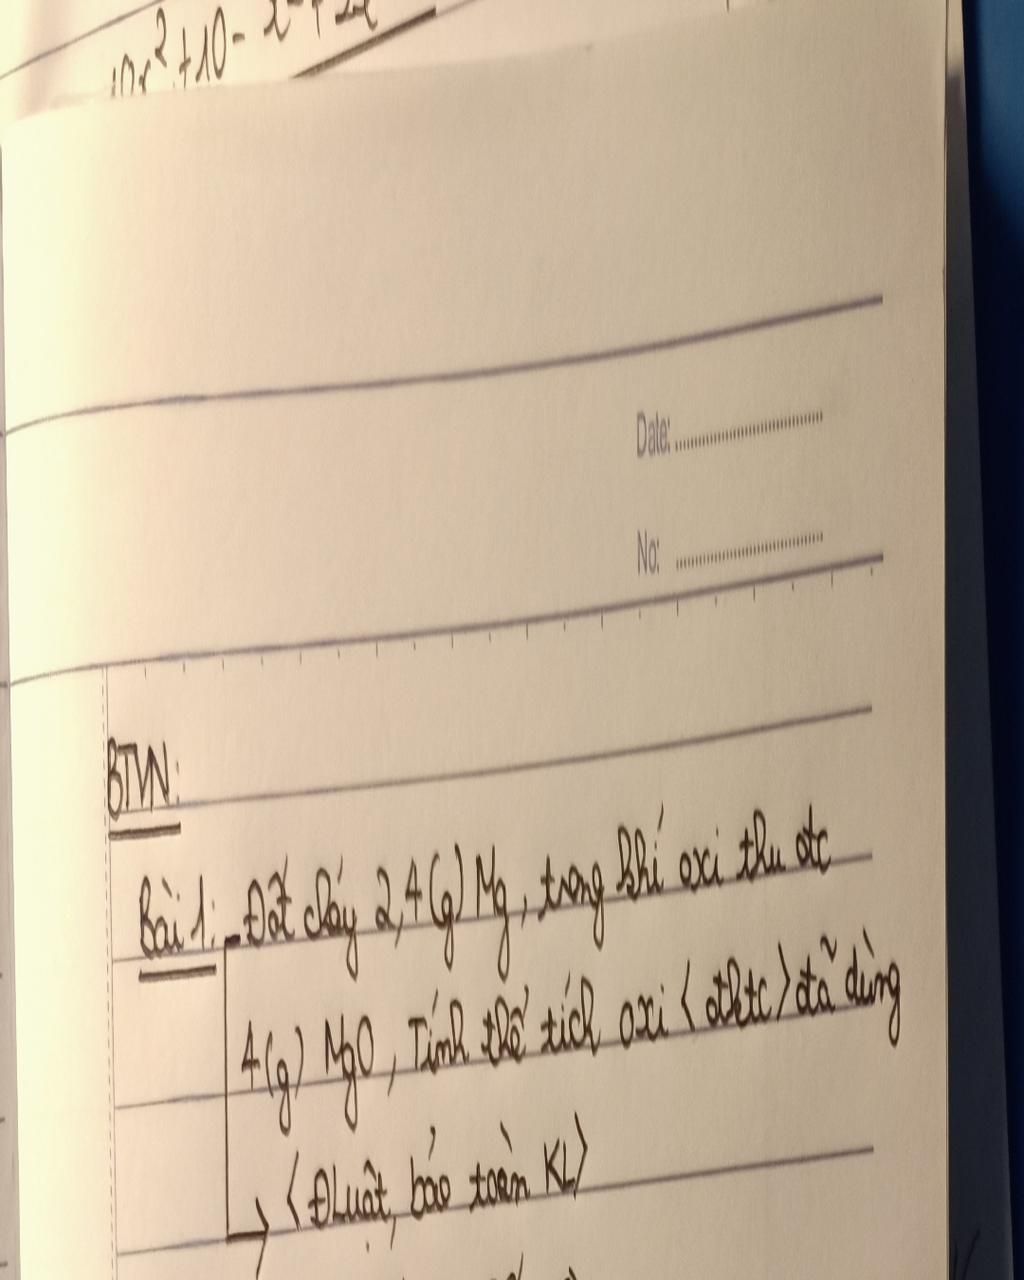 Date:
No:
BTVN:
Bài 1: - Đốt cháy 2,4(g) Mg, trong khí oxi thu đc
4(g) MgO, Tính thể tích oxi <đktc> đã dùng
<ĐLuật, bảo toàn KL>